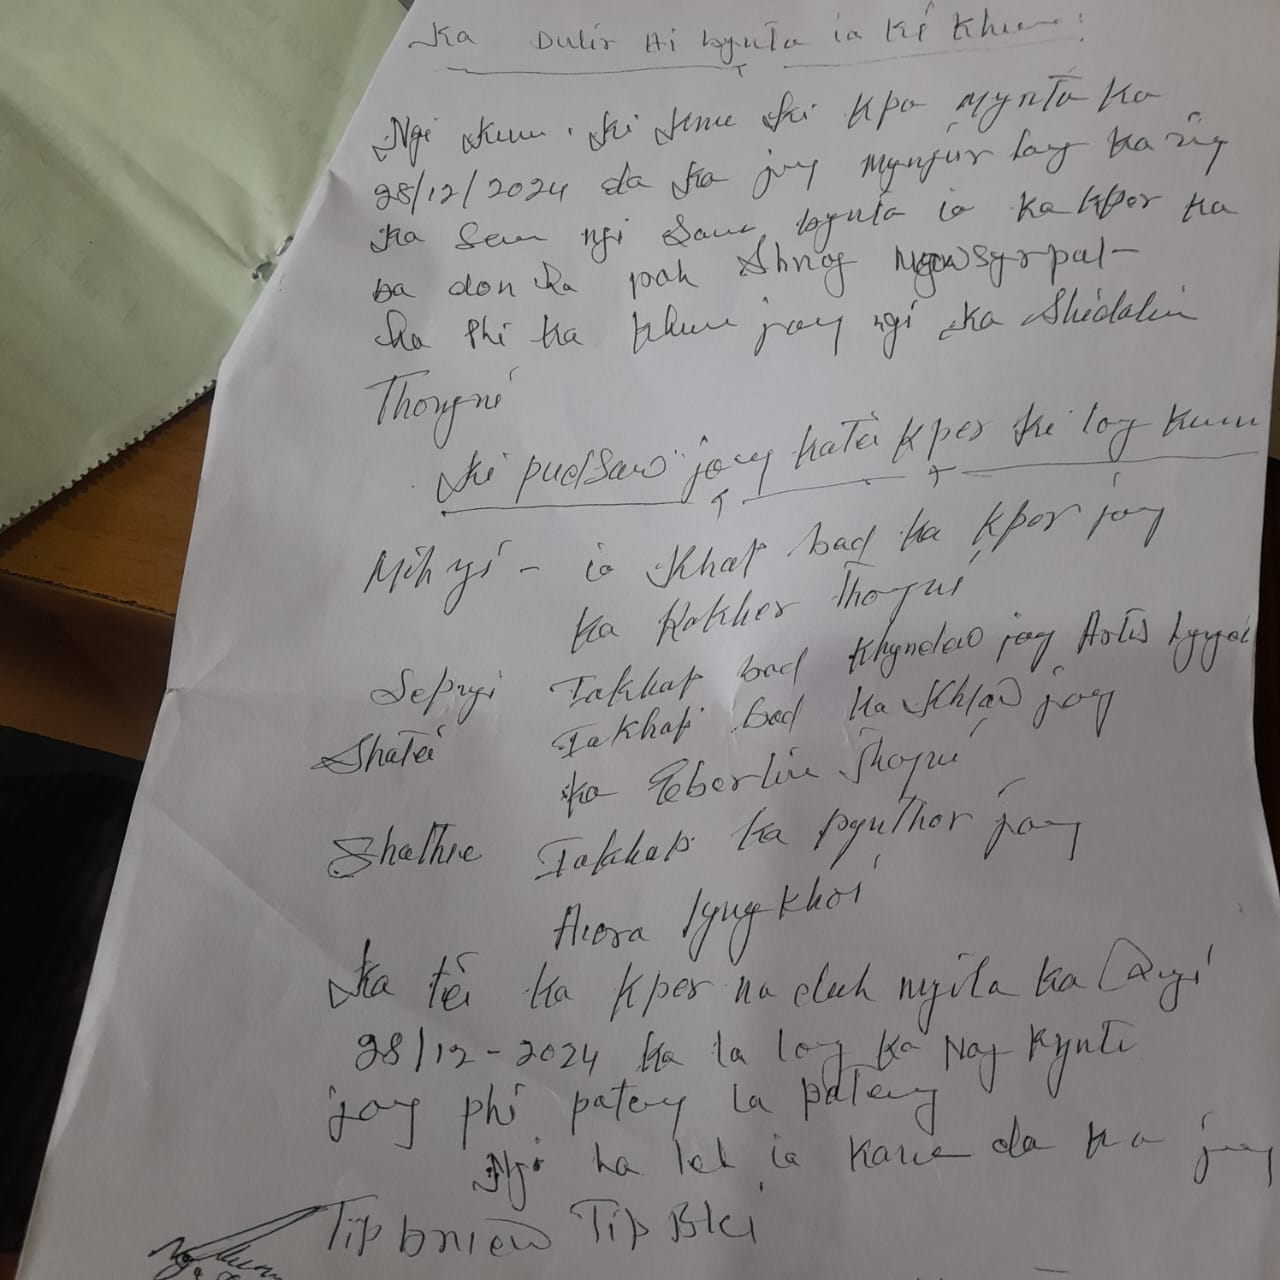 Ka Dulir Ai bynta ia Ki Khun:
Ngi kum ki kmie ki kpa mynta ka
28/12/2024 da ka jing mynjur lang ka iing
ka sem ngi sam bynta ia ka kper ka
ba don ha poh shnong
ha phi ka khun jong ngi ka Shidalin
Thongni
Ki pud saw jong katei kper ki long kum
Mih ngi - ia khap bad ka kper jong
ka Rokher Thongni
Sepngi Iakhap bad khyndew jong
Shatei Iakhap bad ka khlaw jong
ka Eberlin Thongni
Shathie Iakhap ka pynthor jong
Aiora lyngkhoi
Ka tei ka kper naduh nyita ka sngi
28/12-2024 ka la long ka nong kynti
jong phi pateng la pateng
Ngi la leh ia kane da ka jing
Tip briew Tip Blei